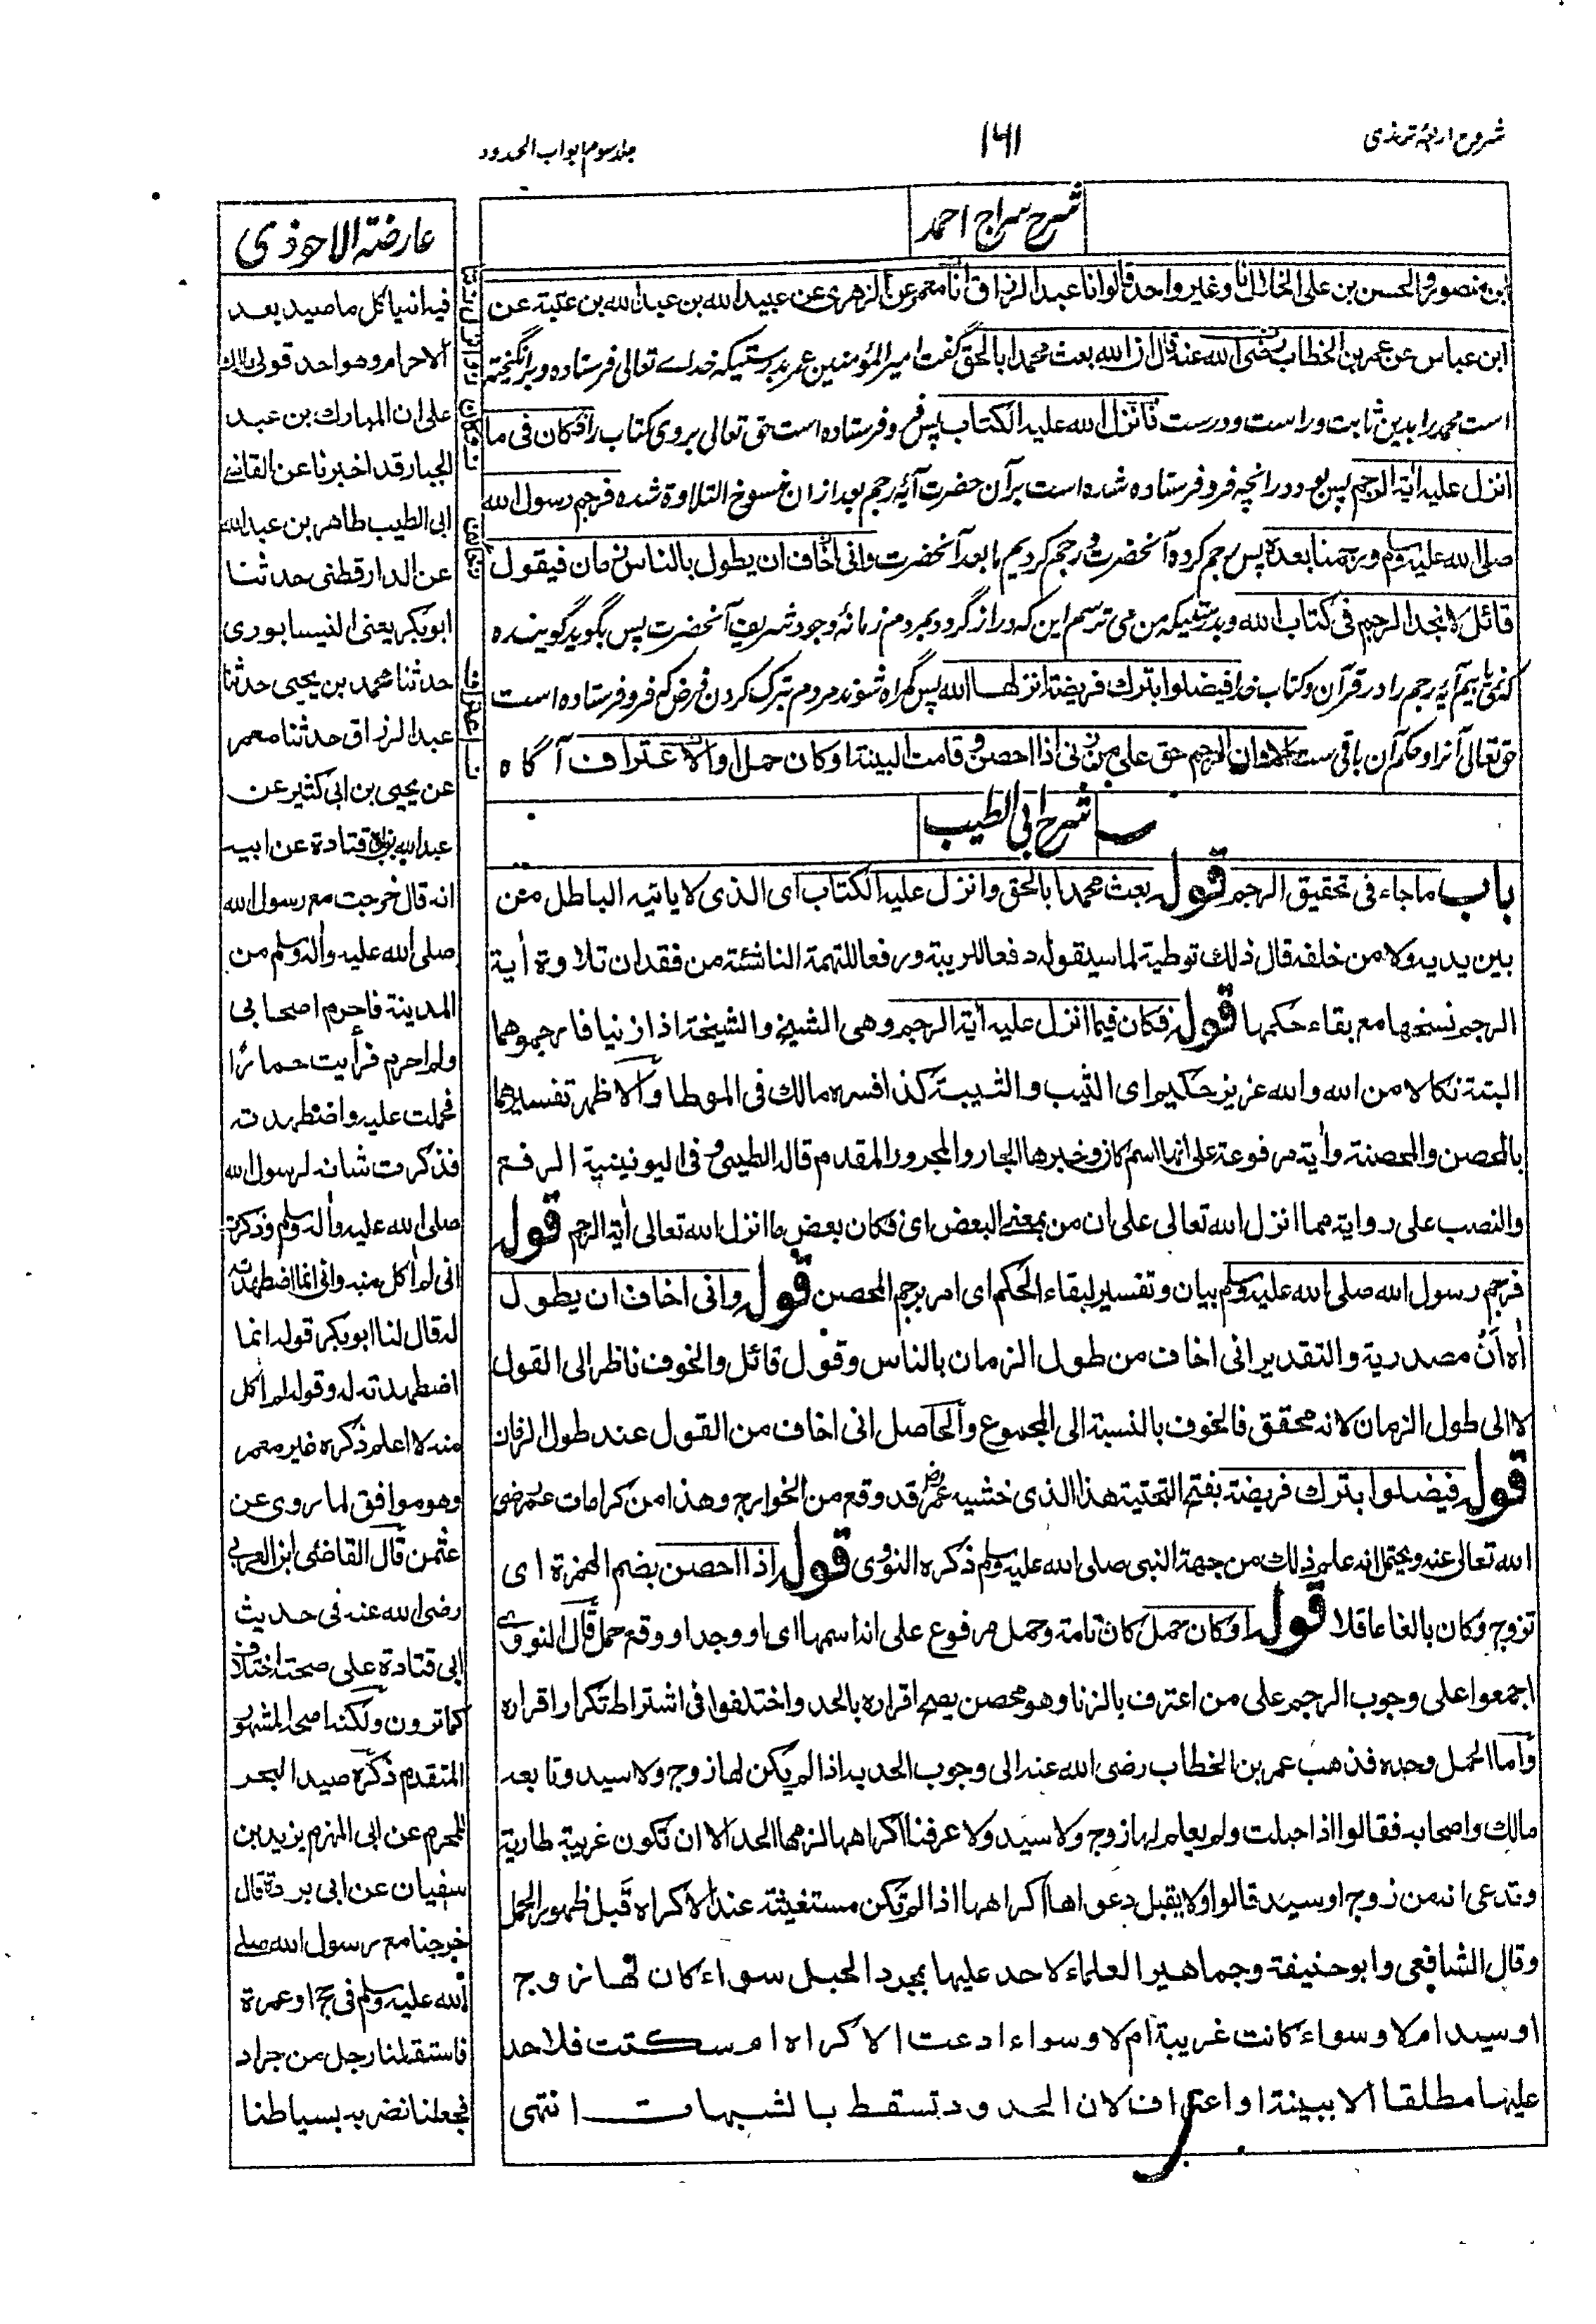 شروح اربعۂ ترمذی
۱۶۱
جلد سوم ابواب الحدود
شرح سراج احمد
ابن منصور والحسن بن علی الخلال انا وغیر واحد قالوا نا عبد الرزاق انا معمر عن الزهری عن عبید الله بن عبد الله بن عتبة عن
ابن عباس عن عمر بن الخطاب رضی الله عنه قال ان الله بعث محمدا بالحق گفت امیر المؤمنین عمر بدرستیکه خدای تعالی فرستاده و برانگیخته
است محمد را بدین ثابت و راست و درست فانزل الله علیه الکتاب پس فرو فرستاده است حق تعالی بر وی کتاب را فکان فی ما
انزل علیه آیة الرجم پس بود در انچه فرو فرستاده شده است بر آن حضرت آیۂ رجم بعد ازان منسوخ التلاوة شده فرجم رسول الله
صلی الله علیه وسلم ورجمنا بعده پس رجم کرده آنحضرت و رجم کردیم ما بعد آنحضرت وانی اخاف ان یطول بالناس زمان فیقول
قائل لا نجد الرجم فی کتاب الله و بدرستیکه من می ترسم این که دراز گردد بمردم زمانۂ وجود شریف آنحضرت پس بگوید گوینده
که نمی یابیم آیۂ رجم را در قرآن و کتاب خدا فیضلوا بترک فریضة انزلها الله پس گمراه شوند مردم بترک کردن فرض که فرو فرستاده است
حق تعالی آنرا و حکم آن باقی ست الا وان الرجم حق علی من زنی اذا احصن وقامت البینة او کان حمل او الاعتراف آگاه
شرح ابی الطیب
باب ما جاء فی تحقیق الرجم قوله بعث محمدا بالحق وانزل علیه الکتاب ای الذی لا یاتیه الباطل من
بین یدیه ولا من خلفه قال ذلک توطیة لما سیقوله دفعا للریبة ورفعا للتهمة الناشئة من فقدان تلاوة أیة
الرجم بنسخها مع بقاء حکمها قوله فکان فیما انزل علیه أیة الرجم وهی الشیخ والشیخة اذا زنیا فارجموهما
البتة نکالا من الله والله عزیز حکیم ای الثیب والثیبة کذا فسره مالک فی الموطا والاظهر تفسیرهما
بالمحصن والمحصنة وأیة مرفوعة علی انها اسم کان وخبرها الجار والمجرور المقدم قاله الطیبی وفی الیونینیة الرفع
والنصب علی روایة مما انزل الله تعالی علی ان من بمعنی البعض ای فکان بعض ما انزل الله تعالی أیة الرجم قوله
فرجم رسول الله صلی الله علیه وسلم بیان وتفسیر لبقاء الحکم ای امر برجم المحصن قوله وانی اخاف ان یطول
أه أن مصدریة والتقدیر انی اخاف من طول الزمان بالناس وقول قائل والخوف ناظر الی القول
لا الی طول الزمان لانه محقق فالخوف بالنسبة الی المجموع والحاصل انی اخاف من القول عند طول الزمان
قوله فیضلوا بترک فریضة بفتح التحتیة هذا الذی خشیه عمر رض قد وقع من الخوارج وهذا من کرامات عمر رضی
الله تعالی عنه ویحتمل انه علم ذلک من جهة النبی صلی الله علیه وسلم ذکره النووی قوله اذا احصن بضم الهمزة ای
تزوج وکان بالغا عاقلا قوله او کان حمل کان تامة وحمل مرفوع علی انه اسمها ای او وجد او وقع حمل قال النووی
اجمعوا علی وجوب الرجم علی من اعترف بالزنا وهو محصن یصح اقراره بالحد واختلفوا فی اشتراط تکرار اقراره
وأما الحمل وحده فذهب عمر بن الخطاب رضی الله عنه الی وجوب الحد به اذا لم یکن لها زوج ولا سید وتابعه
مالک واصحابه فقالوا اذا حبلت ولم یعلم لها زوج ولا سید ولا عرفنا اکراهها لزمها الحد الا ان تکون غریبة طاریة
وتدعی انه من زوج او سید قالوا ولا یقبل دعواها اکراهها اذا لم تکن مستغیثة عند الاکراه قبل ظهور الحمل
وقال الشافعی وابو حنیفة وجماهیر العلماء لا حد علیها بمجرد الحبل سواء کان لها زوج
او سید ام لا وسواء کانت غریبة ام لا وسواء ادعت الاکراه ام سکتت فلا حد
علیها مطلقا الا ببینة او اعتراف لان الحدود تسقط بالشبهات انتهی
عارضة الاحوذی
فیه انیا کل ما صید بعد
الاحرام وهو احد قولی مالک
علی ان المبارک بن عبد
الجبار قد اخبرنا عن القاضی
ابی الطیب طاهر بن عبد الله
عن الدارقطنی حدثنا
ابو بکر یعنی النیسابوری
حدثنا محمد بن یحیی حدثنا
عبد الرزاق حدثنا معمر
عن یحیی بن ابی کثیر عن
عبد الله بن ابی قتادة عن ابیه
انه قال خرجت مع رسول الله
صلی الله علیه وأله وسلم من
المدینة فاحرم اصحابی
ولم احرم فرأیت حمارا
فحملت علیه واضطهدته
فذکرت شانه لرسول الله
صلی الله علیه وأله وسلم وذکرت
انی لم أکل منه وانی انما اضطهدته
له قال لنا ابو بکر قوله انما
اضطهدته له وقوله لم أکل
منه لا اعلم ذکره غیر معمر
وهو موافق لما روی عن
عثمن قال القاضی ابن العربی
رضی الله عنه فی حدیث
ابی قتادة علی صحته اختلاف
کما ترون ولکنه اصح المشهور
المتقدم ذکره صید البحر
للمحرم عن ابی المهزم یزید بن
سفیان عن ابی بردة قال
خرجنا مع رسول الله صلی
الله علیه وسلم فی حج او عمرة
فاستقبلنا رجل من جراد
فجعلنا نضربه بسیاطنا